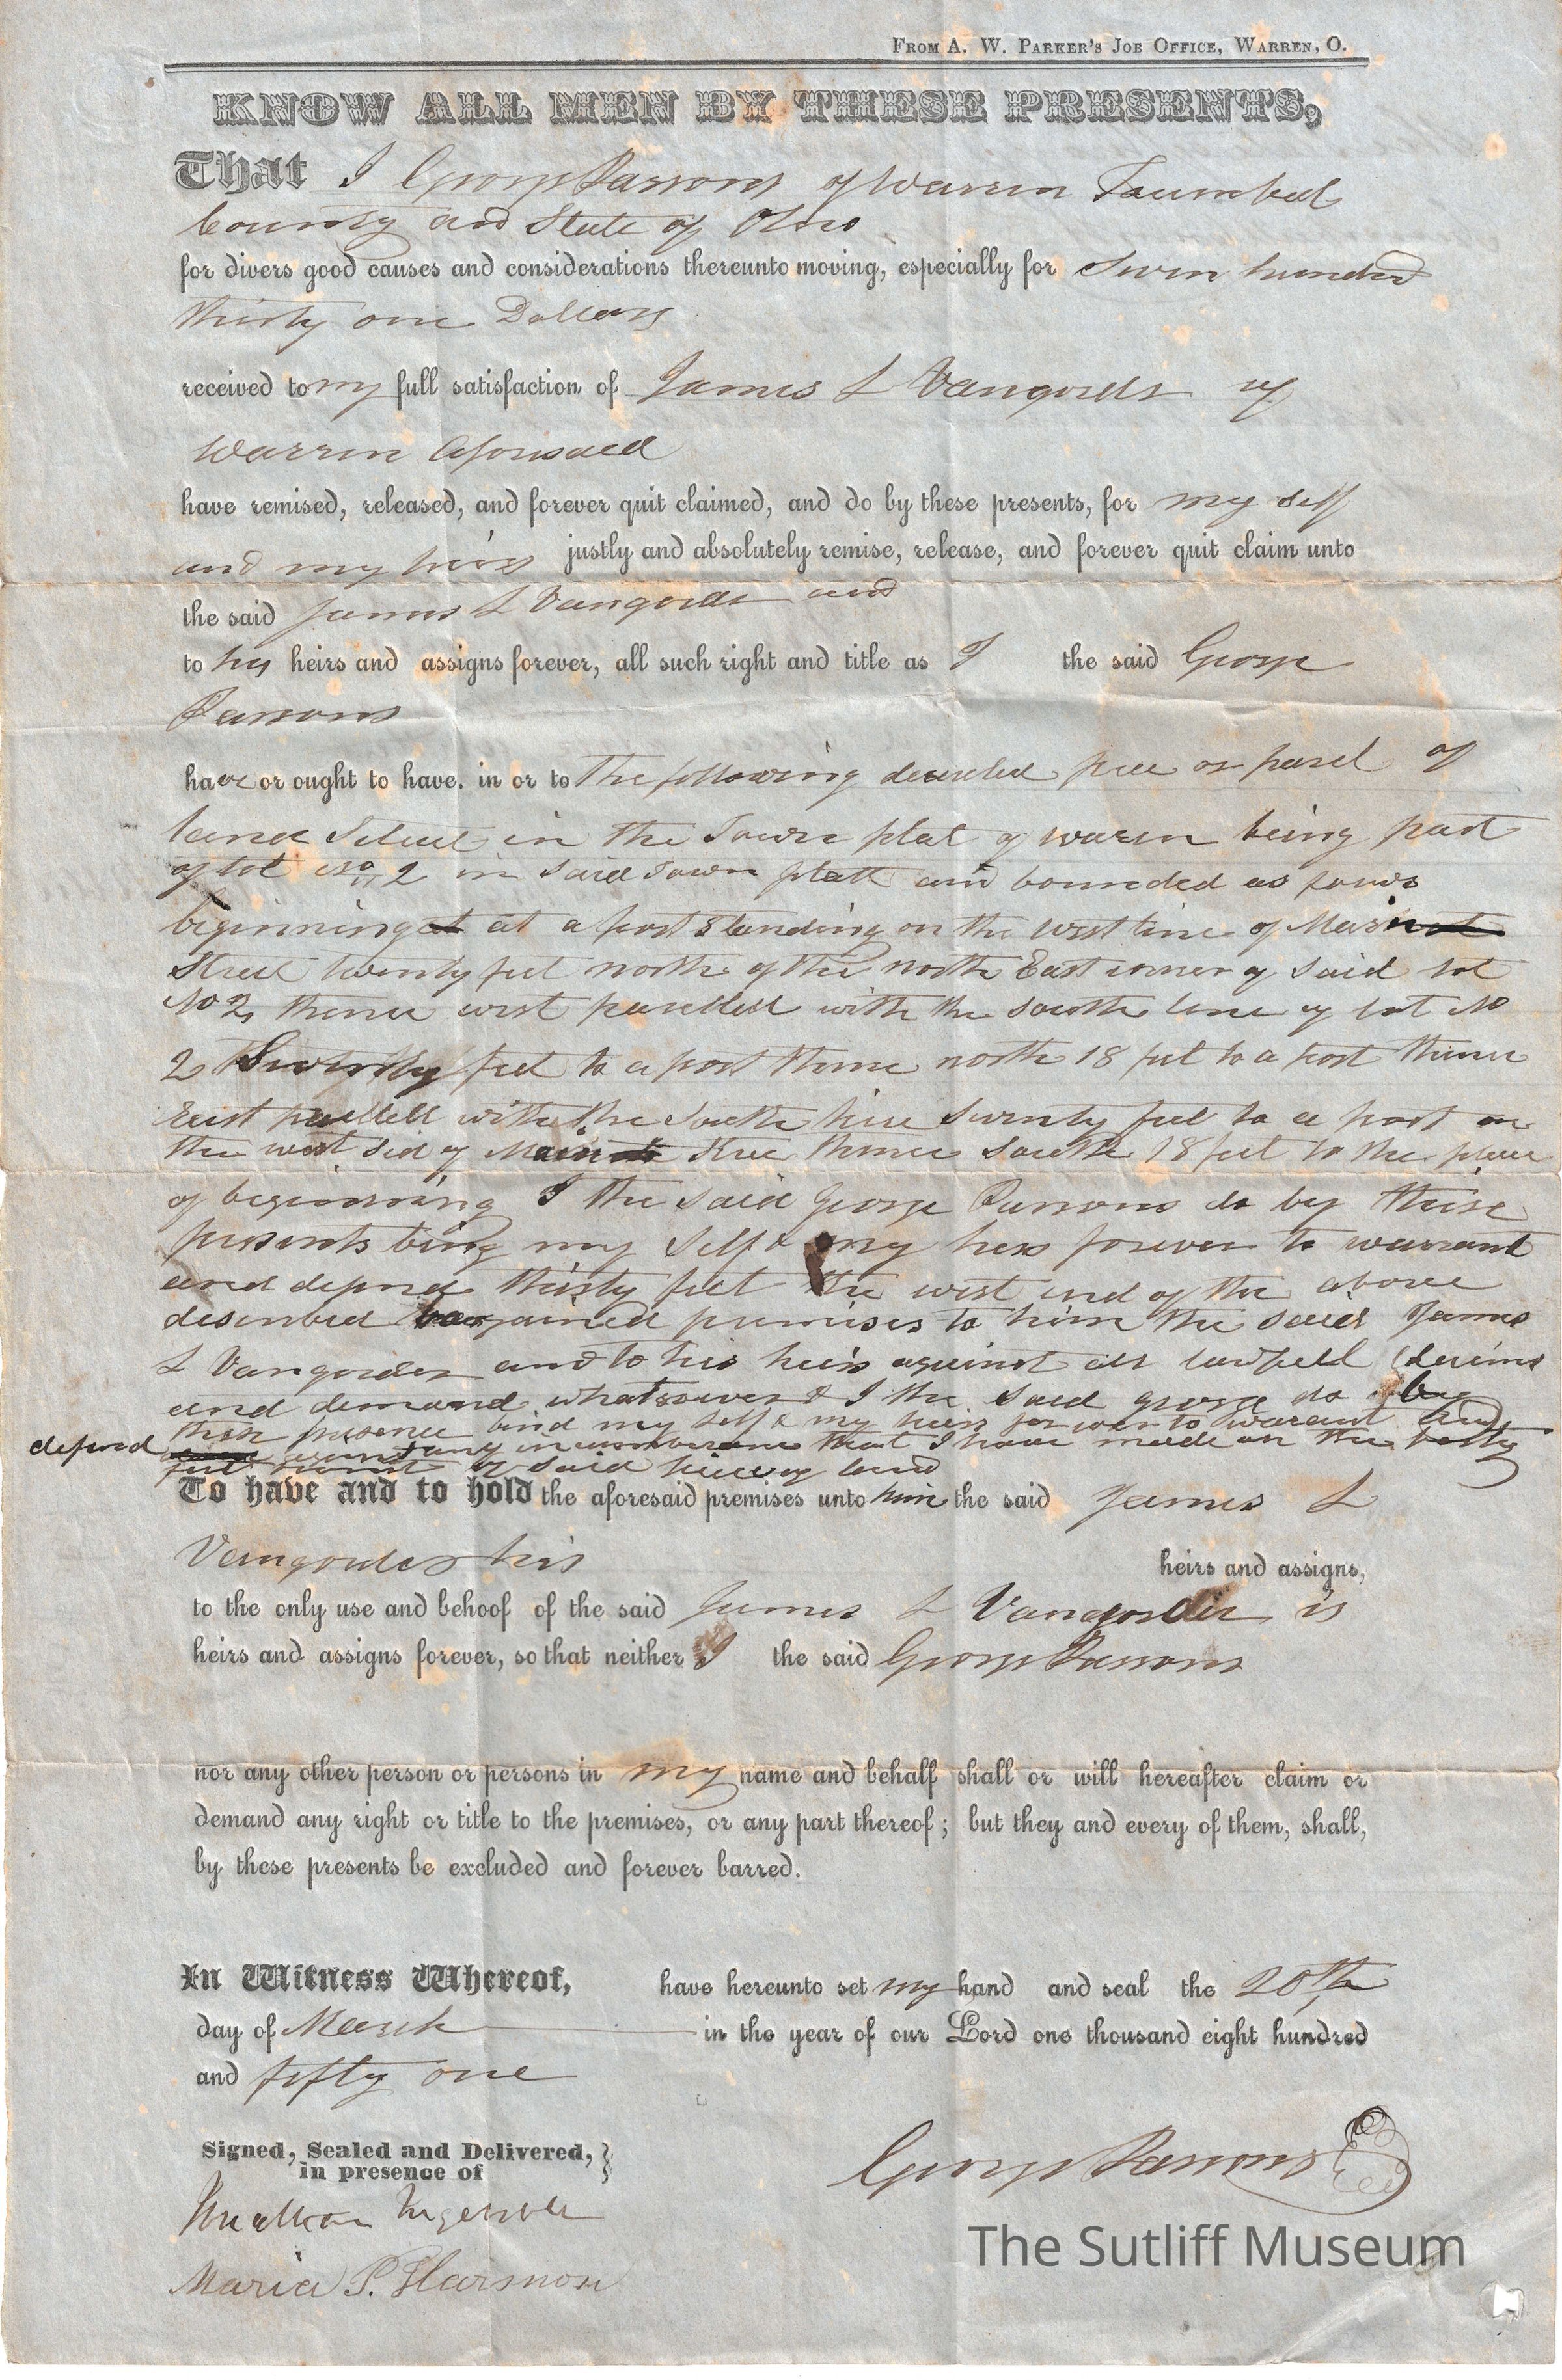 FROM A. W. PARKER'S JOB OFFICE, WARREN, O.
KNOW ALL MEN BY THESE PRESENTS,
That I George Parsons of Warren Trumbul
County and State of Ohio
for divers good causes and considerations thereunto moving, especially for Seven hundred
thirty one Dollars
received to my full satisfaction of James L Vangorder of
Warren aforesaid
have remised, released, and forever quit claimed, and do by these presents, for my self
and my heirs justly and absolutely remise, release, and forever quit claim unto
the said James L Vangorder and
to his heirs and assigns forever, all such right and title as I the said George
Parsons
have or ought to have. in or to the following described piece or parsel of
land in the Town plat of warren being part
of lot No 2 in said Town platt and bounded as
beginning at a post standing on the west line of Main
Street twenty feet north of the north East corner of said lot
No 2, thence west parellell with the south line of lot No
2 feet to a post thence north 18 feet to a post thence
East parellell with the South line seventy feet to a post on
the west sid of Main thence south 18 feet to the place
of beginning I the said George Parsons do by these
presents bing my Self & my heirs forever to warrant
and defend thirty feet the west end of the above
described bargained premises to him the said James
L Vangorder and to his heirs against all lawfull Claims
and demand whatsoever & I the said george do by
these presence bind my self & my heirs forever to warant and
defend any incumberance that I have made on the
feet of said piece of land
To have and to hold the aforesaid premises unto him the said James L
Vangorder his heirs and assigns,
to the only use and behoof of the said James L Vangorder is
heirs and assigns forever, so that neither I the said George Parsons
nor any other person or persons in my name and behalf shall or will hereafter claim or
demand any right or title to the premises, or any part thereof; but they and every of them, shall,
by these presents be excluded and forever barred.
In Witness Whereof, have hereunto set my hand and seal the 20th
day of March in the year of our Lord one thousand eight hundred
and fifty one
Signed, Sealed and Delivered,
in presence of
George Parsons
Ingersoll
Maria P. Harmon
The Sutliff Museum